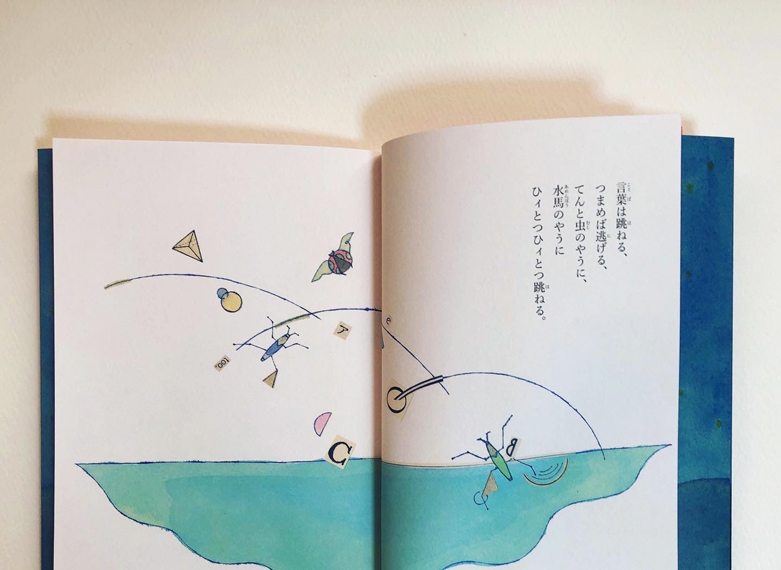 言葉は跳ねる、
つまめば逃げる、
てんと虫のやうに、
水馬のやうに
ひィとつひィとつ跳ねる。
ア
100
C
B